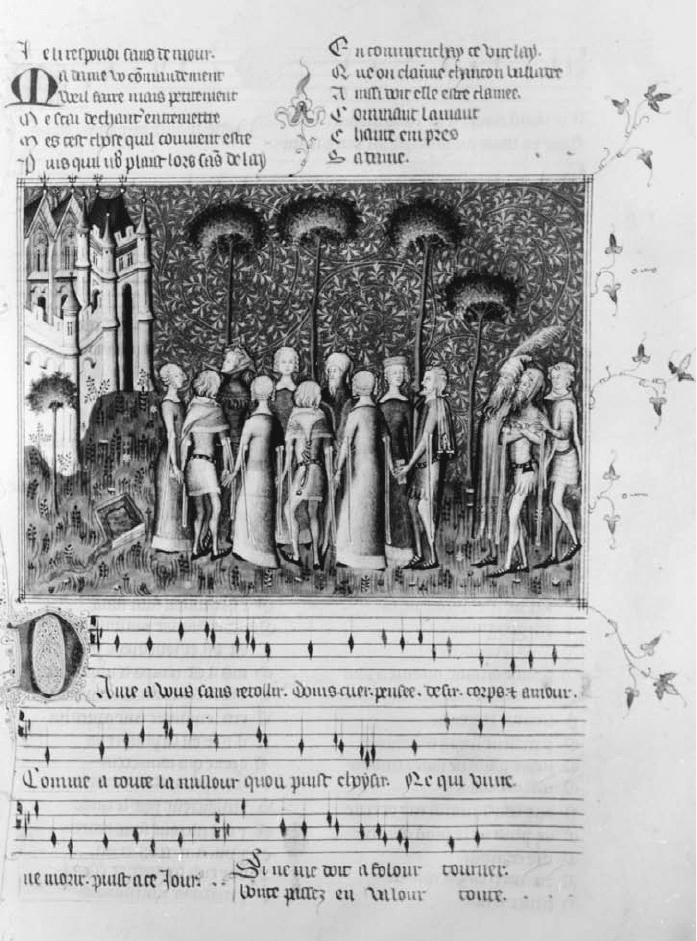 Je li respondi sans demour.
Ma dame vo cōmandement
Vueil faire mais petitement
Me scai de chant entremettre
Mes cest chose quil couuient estre
Puis quil vꝰ plaist lors sās delay
En commenchay ce virelay.
Que on claimme chancon balladee
Ainssi doit elle estre clamee.
Comment lamant
Chante empres
Sa dame.
Dame a vous sans retollir. Doins cuer. pensee. desir. corps ⁊ amour.
Comme a toute la millour quon puist choysir. Ne qui viure.
ne morir. puist a ce Jour.
Si ne me doit a folour tourner.
toute.